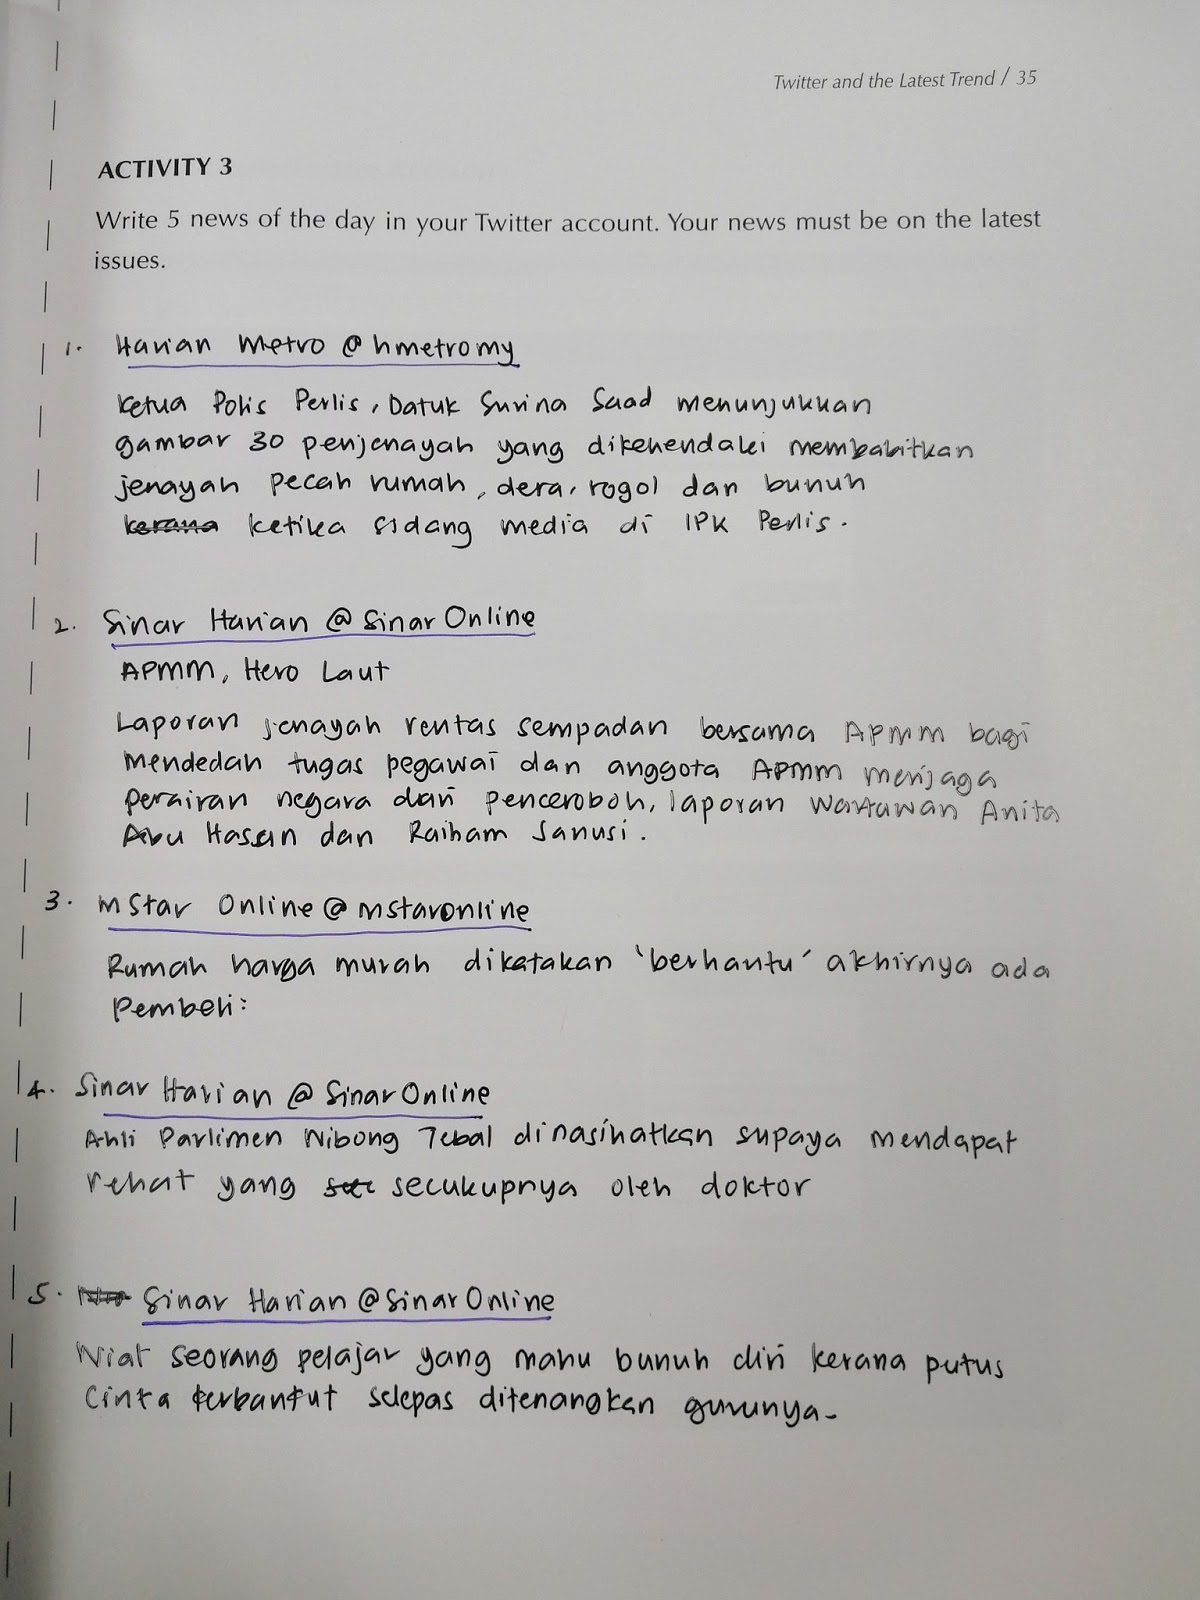 Twitter and the Latest Trend / 35
ACTIVITY 3
Write 5 news of the day in your Twitter account. Your news must be on the latest
issues.
1. Harian Metro @hmetromy
Ketua Polis Perlis, Datuk Surina Saad menunjukkan
gambar 30 penjenayah yang dikehendaki membabitkan
jenayah pecah rumah, dera, rogol dan bunuh
kerana ketika sidang media di IPK Perlis.
2. Sinar Harian @SinarOnline
APMM, Hero Laut
Laporan jenayah rentas sempadan bersama APMM bagi
Mendedah tugas pegawai dan anggota APMM menjaga
perairan negara dari penceroboh, laporan Wartawan Anita
Abu Hasan dan Raiham Sanusi.
3. mStar Online @mstaronline
Rumah harga murah dikatakan 'berhantu' akhirnya ada
Pembeli:
4. Sinar Harian @SinarOnline
Ahli Parlimen Nibong Tebal dinasihatkan supaya mendapat
rehat yang secukupnya oleh doktor
5. Sinar Harian @SinarOnline
Niat seorang pelajar yang mahu bunuh diri kerana putus
Cinta terbantut selepas ditenangkan gurunya.